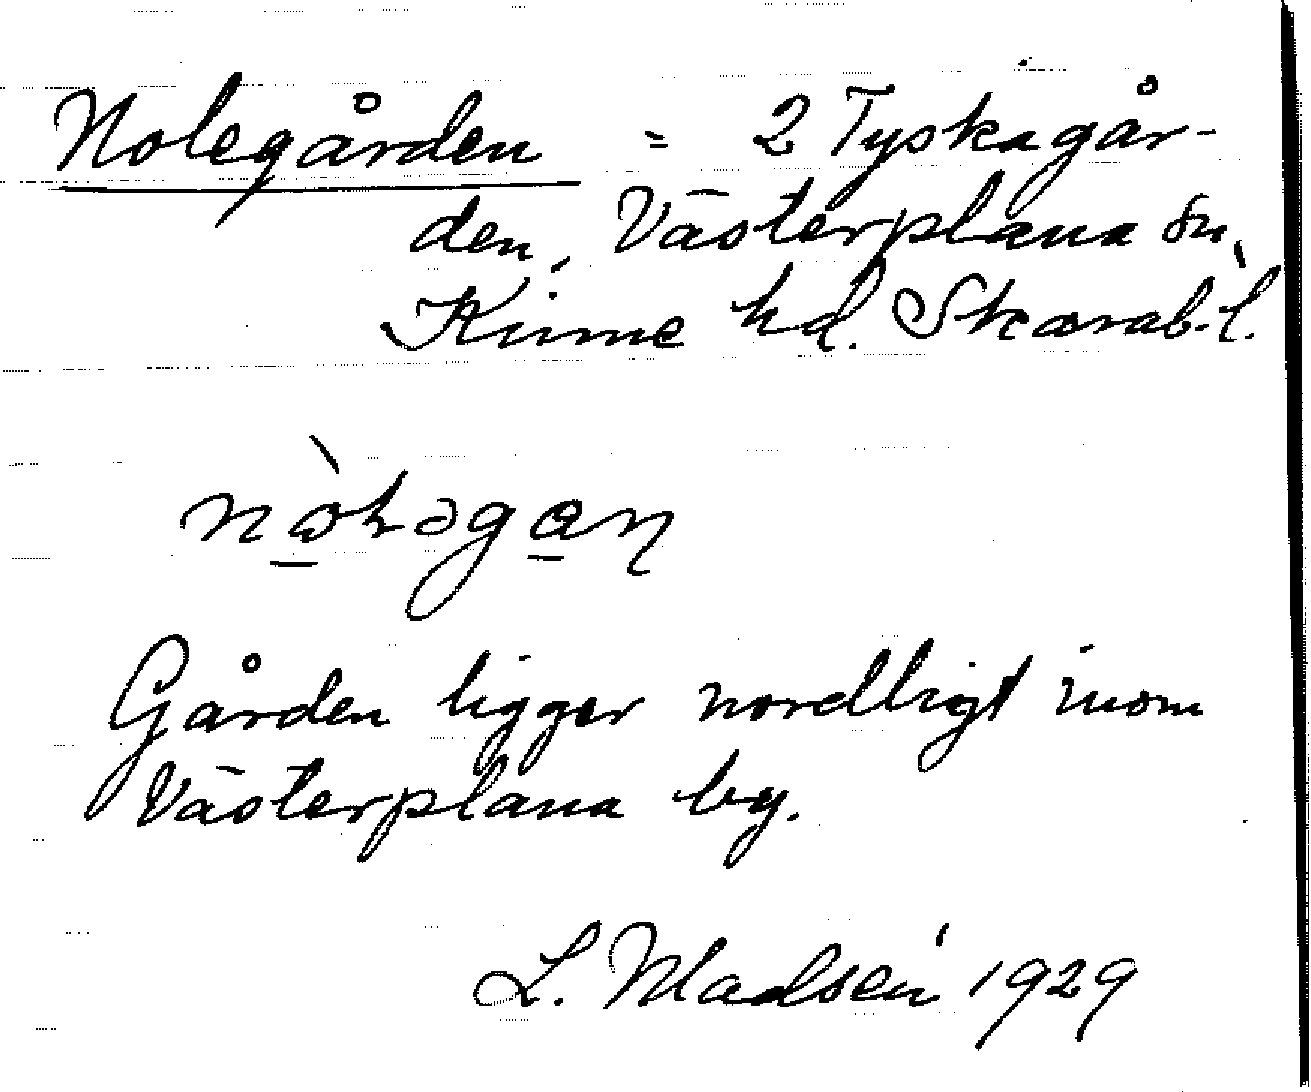 Nolegården = 2 Tyskagår-
den, Västerplana sn,
Kinne hd. Skarab. l.
nòłəgaɳ
Gården ligger nordligt inom
Västerplana by.
L. Madsén 1929